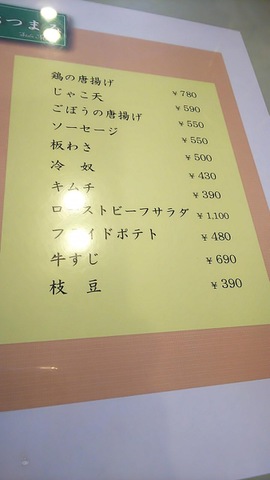 おつまみ
鶏の唐揚げ ￥780
じゃこ天 ￥590
ごぼうの唐揚げ ￥550
ソーセージ ￥550
板わさ ￥500
冷 奴 ￥430
キムチ ￥390
ローストビーフサラダ ￥1,100
フライドポテト ￥480
牛すじ ￥690
枝 豆 ￥390